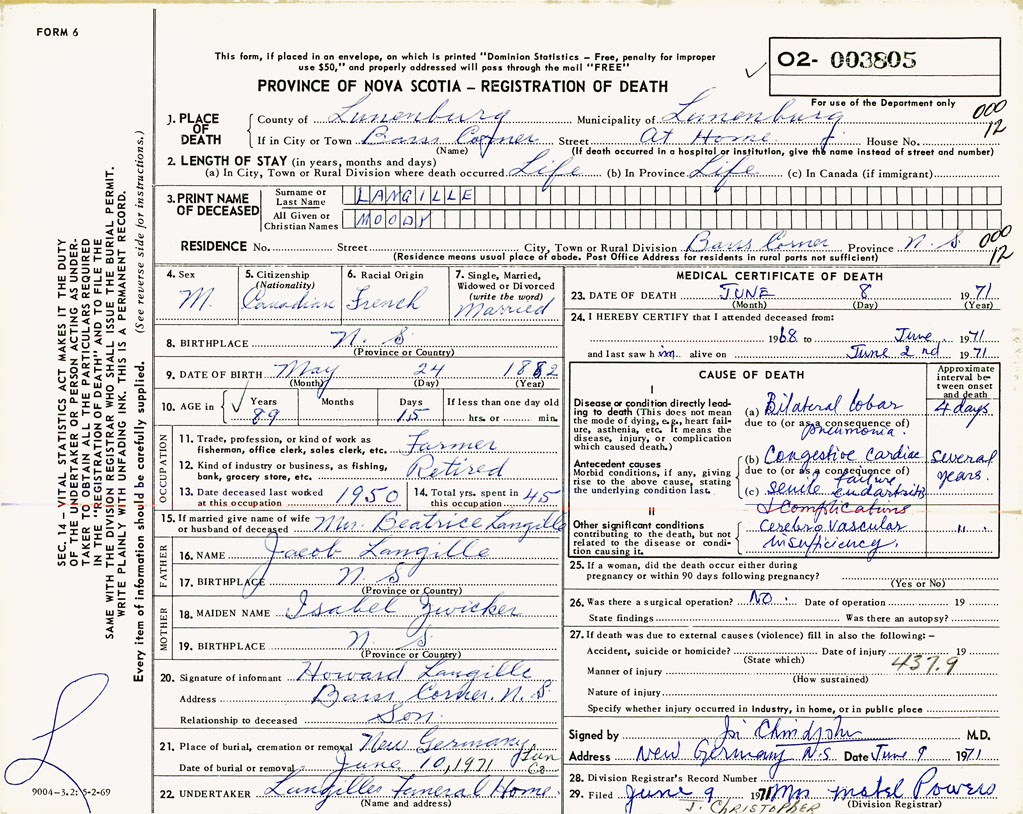 FORM 6
This form, if placed in an envelope, on which is printed "Dominion Statistics – Free, penalty for improper
use $50," and properly addressed will pass through the mail "FREE"
02- 003805
PROVINCE OF NOVA SCOTIA – REGISTRATION OF DEATH
For use of the Department only
000
12
1. PLACE OF DEATH
County of Lunenburg Municipality of Lunenburg
If in City or Town Barss Corner Street At Home House No.
(Name) (If death occurred in a hospital or institution, give the name instead of street and number)
2. LENGTH OF STAY (in years, months and days)
(a) In City, Town or Rural Division where death occurred Life (b) In Province Life (c) In Canada (if immigrant)
3. PRINT NAME OF DECEASED
Surname or Last Name LANGILLE
All Given or Christian Names MOODY
RESIDENCE No. Street City, Town or Rural Division Barss Corner Province N. S.
(Residence means usual place of abode. Post Office Address for residents in rural parts not sufficient)
000
12
4. Sex
M.
5. Citizenship
(Nationality)
Canadian
6. Racial Origin
French
7. Single, Married,
Widowed or Divorced
(write the word)
Married
8. BIRTHPLACE N. S
(Province or Country)
9. DATE OF BIRTH May 24 1882
(Month) (Day) (Year)
10. AGE in
Years
89
Months
Days
15
If less than one day old
hrs. or min.
OCCUPATION
11. Trade, profession, or kind of work as
fisherman, office clerk, sales clerk, etc. Farmer
12. Kind of industry or business, as fishing,
bank, grocery store, etc. Retired
13. Date deceased last worked
at this occupation 1950
14. Total yrs. spent in
this occupation 45
15. If married give name of wife
or husband of deceased Mrs. Beatrice Langille
FATHER
16. NAME Jacob Langille
17. BIRTHPLACE N. S
(Province or Country)
MOTHER
18. MAIDEN NAME Isabel Zwicker
19. BIRTHPLACE N. S.
(Province or Country)
20. Signature of informant Howard Langille
Address Barss Corner. N. S
Relationship to deceased Son.
21. Place of burial, cremation or removal New Germany
Lun Co
Date of burial or removal June 10, 1971
22. UNDERTAKER Langilles Funeral Home.
(Name and address)
MEDICAL CERTIFICATE OF DEATH
23. DATE OF DEATH JUNE 8 1971
(Month) (Day) (Year)
24. I HEREBY CERTIFY that I attended deceased from:
1968 to June 1971
and last saw him alive on June 2nd 1971
CAUSE OF DEATH
Approximate
interval be-
tween onset
and death
I
Disease or condition directly lead-
ing to death (This does not mean
the mode of dying, e.g., heart fail-
ure, asthenia, etc. It means the
disease, injury, or complication
which caused death.)
(a) Bilateral lobar
due to (or as a consequence of)
pneumonia.
4 days
Antecedent causes
Morbid conditions, if any, giving
rise to the above cause, stating
the underlying condition last.
(b) Congestive cardiac
due to (or as a consequence of)
failure
(c) senile endarteritis
& Complications
several
years.
II
Other significant conditions
contributing to the death, but not
related to the disease or condi-
tion causing it.
Cerebro Vascular
insufficiency.
"
25. If a woman, did the death occur either during
pregnancy or within 90 days following pregnancy?
(Yes or No)
26. Was there a surgical operation? No. Date of operation 19
State findings Was there an autopsy?
27. If death was due to external causes (violence) fill in also the following: –
Accident, suicide or homicide? Date of injury 19
(State which)
437.9
Manner of injury
(How sustained)
Nature of injury
Specify whether injury occurred in industry, in home, or in public place
Signed by M.D.
Address New Germany N.S Date June 9 1971
28. Division Registrar's Record Number
29. Filed June 9 1971 Mrs Mabel Powers
(Division Registrar)
J. CHRISTOPHER
SEC. 14 – VITAL STATISTICS ACT MAKES IT THE DUTY
OF THE UNDERTAKER OR PERSON ACTING AS UNDER-
TAKER TO OBTAIN ALL THE PARTICULARS REQUIRED
IN THE "REGISTRATION OF DEATH" AND TO FILE THE
SAME WITH THE DIVISION REGISTRAR WHO SHALL ISSUE THE BURIAL PERMIT.
WRITE PLAINLY WITH UNFADING INK. THIS IS A PERMANENT RECORD.
Every item of information should be carefully supplied. (See reverse side for instructions.)
9004-3.2: 5-2-69